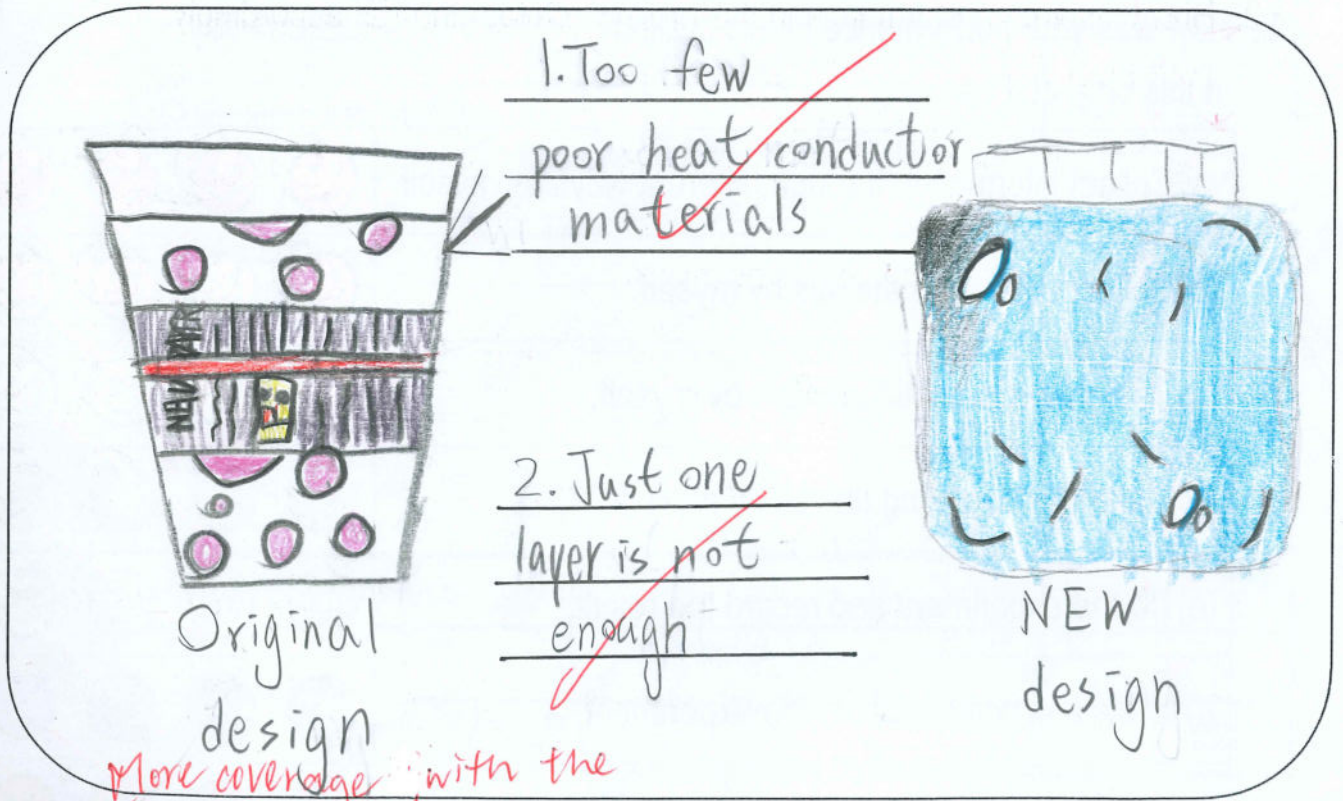 1. Too few
poor heat conductor
materials
NEWS PAPER
2. Just one
layer is not
enough
Original
design
NEW
design
More coverage with the